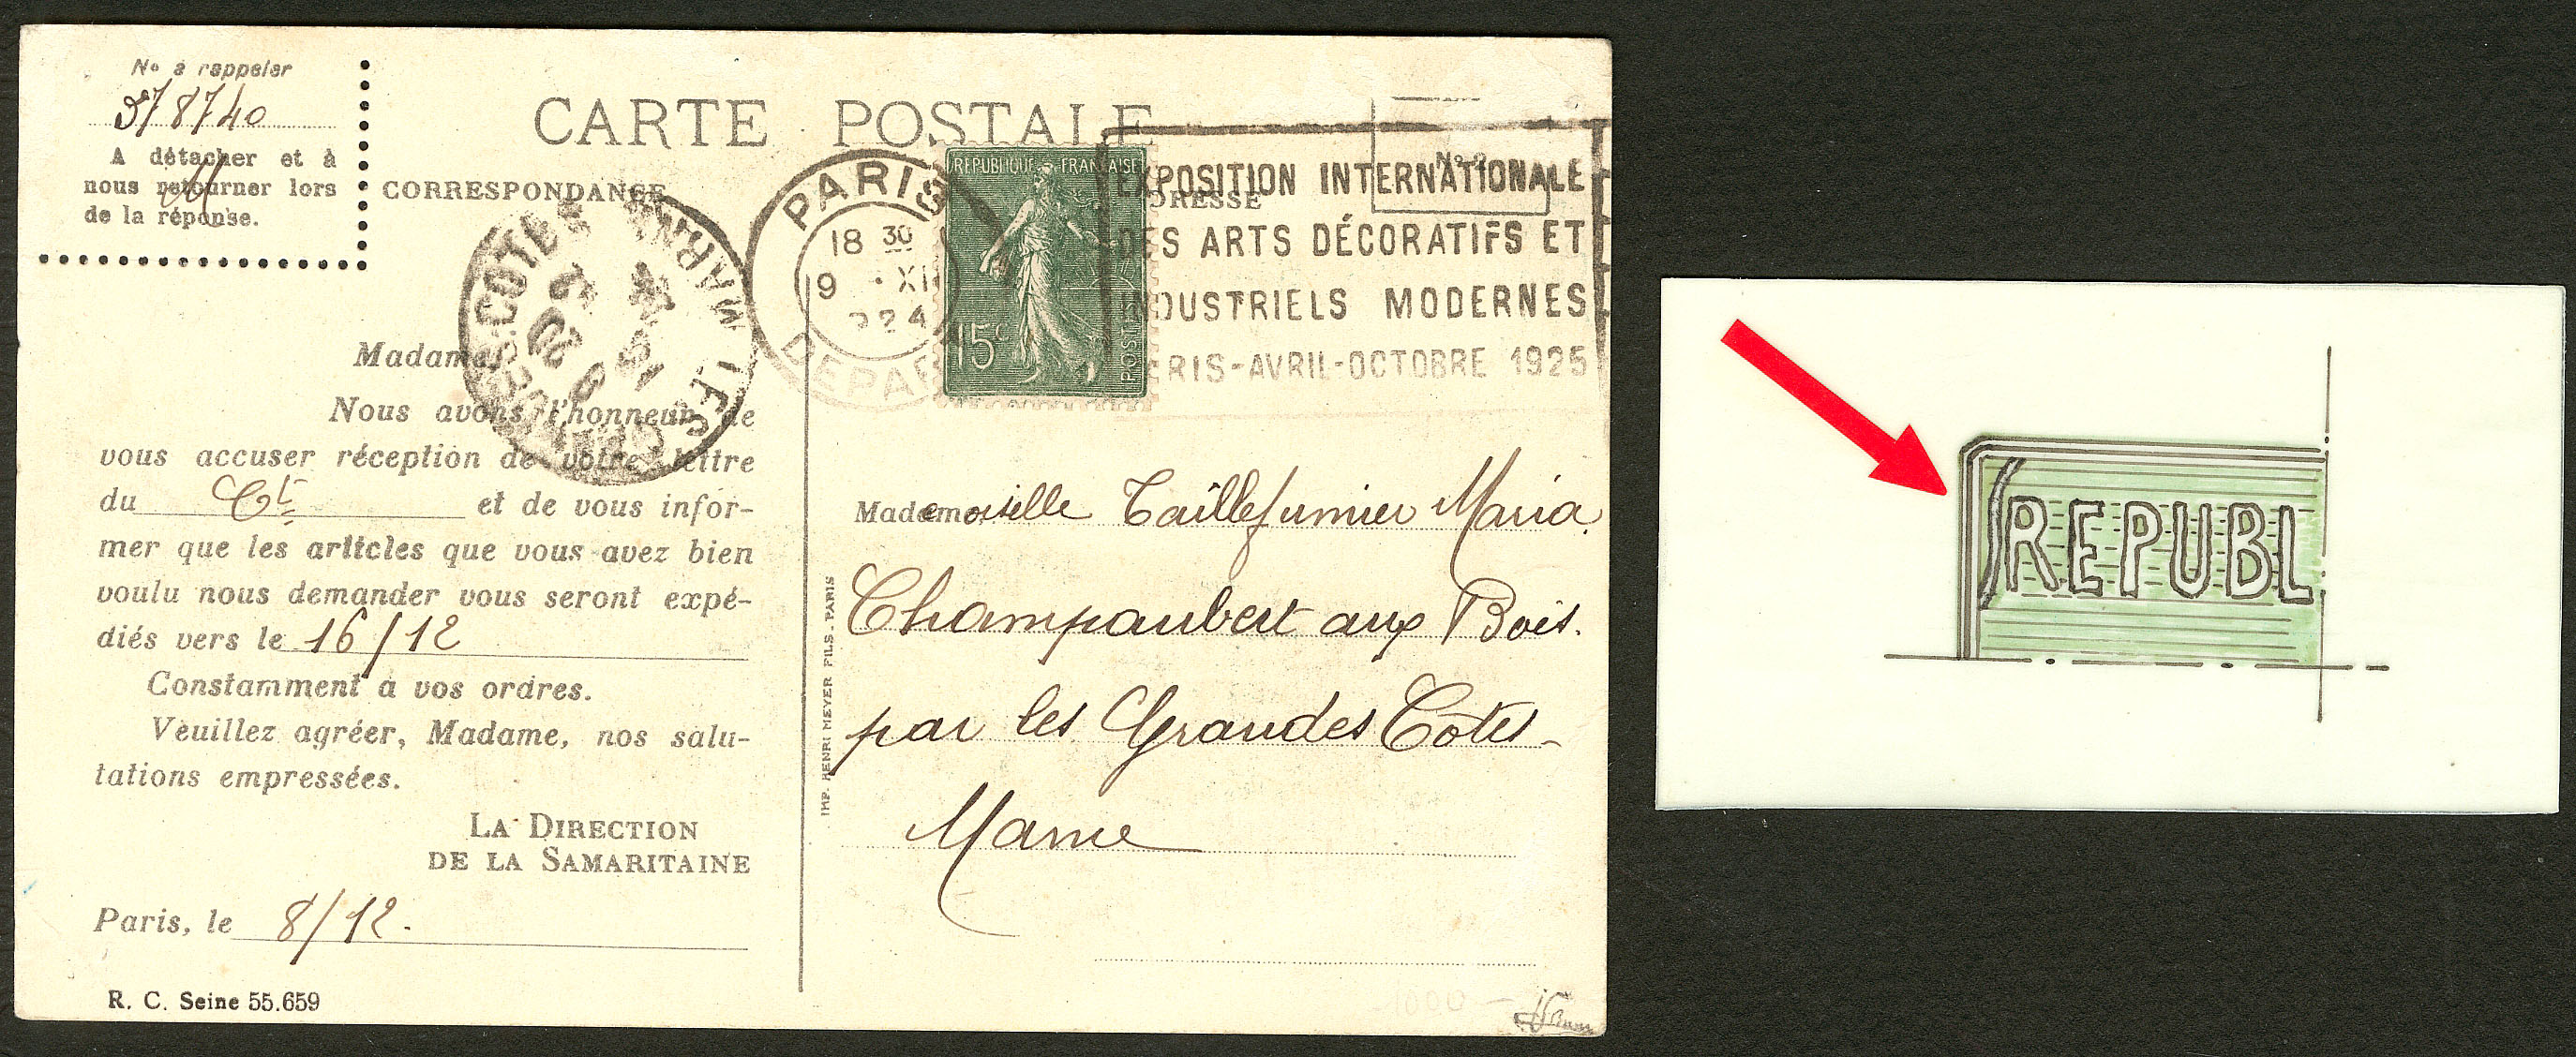 No à rappeler
378740
A détacher et à
nous retourner lors
de la réponse.
CARTE POSTALE
CORRESPONDANCE
RESSE
No
PARIS
18 30
9 · XII
24
DEPA
REPUBLIQUE FRANÇAISE
15c
POSTES
EXPOSITION INTERNATIONALE
DES ARTS DÉCORATIFS ET
INDUSTRIELS MODERNES
RIS-AVRIL-OCTOBRE 1925
COTES
MARNE
LES
Madame,
Nous avons l'honneur de
vous accuser réception de votre lettre
du et de vous infor-
mer que les articles que vous avez bien
voulu nous demander vous seront expé-
diés vers le 16/12
Constamment à vos ordres.
Veuillez agréer, Madame, nos salu-
tations empressées.
LA DIRECTION
DE LA SAMARITAINE
Paris, le 8/12.
R. C. Seine 55.659
IMP. HENRI MEYER FILS - PARIS
Mademoiselle Taillefumier Maria
Champaubert aux Bois.
par les Grandes Côtes-
Marne
1000 -
REPUBL